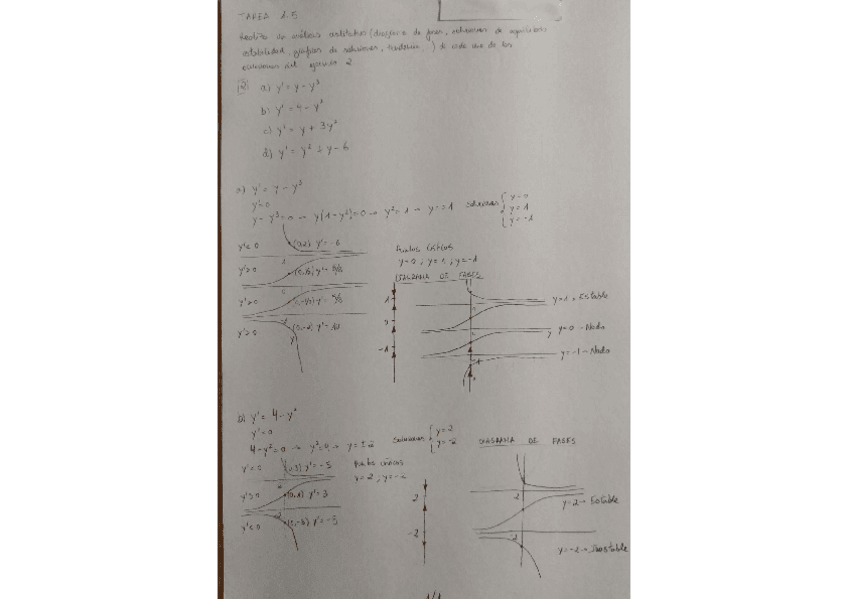 TAREA 1.5
Realiza un análisis cualitativo (diagrama de fases, soluciones de equilibrio,
estabilidad, gráficas de soluciones, tendencia, ) de cada una de las
ecuaciones del ejercicio 2
2 a) y' = y - y³
b) y' = 4 - y²
c) y' = y + 3y²
d) y' = y² + y - 6
a) y' = y - y³
y' = 0
y - y³ = 0 → y(1-y²)=0 → y²=1 → y=±1 soluciones { y=0
y=1
y=-1
y'<0 (0,2) y' = -6
y'>0
y'>0
y'>0
Puntos críticos
y=0 ; y=1 ; y=-1
DIAGRAMA DE FASES
1
-1
y=1 → Estable
y=0 → Nodo
y=-1 → Nodo
b) y' = 4 - y²
y'=0
4-y²=0 → y²=4 → y=±2 soluciones { y=2
y=-2
DIAGRAMA DE FASES
y'<0 (0,3) y' = -5
y'>0 (0,1) y' = 3
y'<0 (0,-3) y' = -5
Puntos críticos
y=2 ; y=-2
2
-2
2
-2
y=2 → Estable
y=-2 → Inestable
1/1